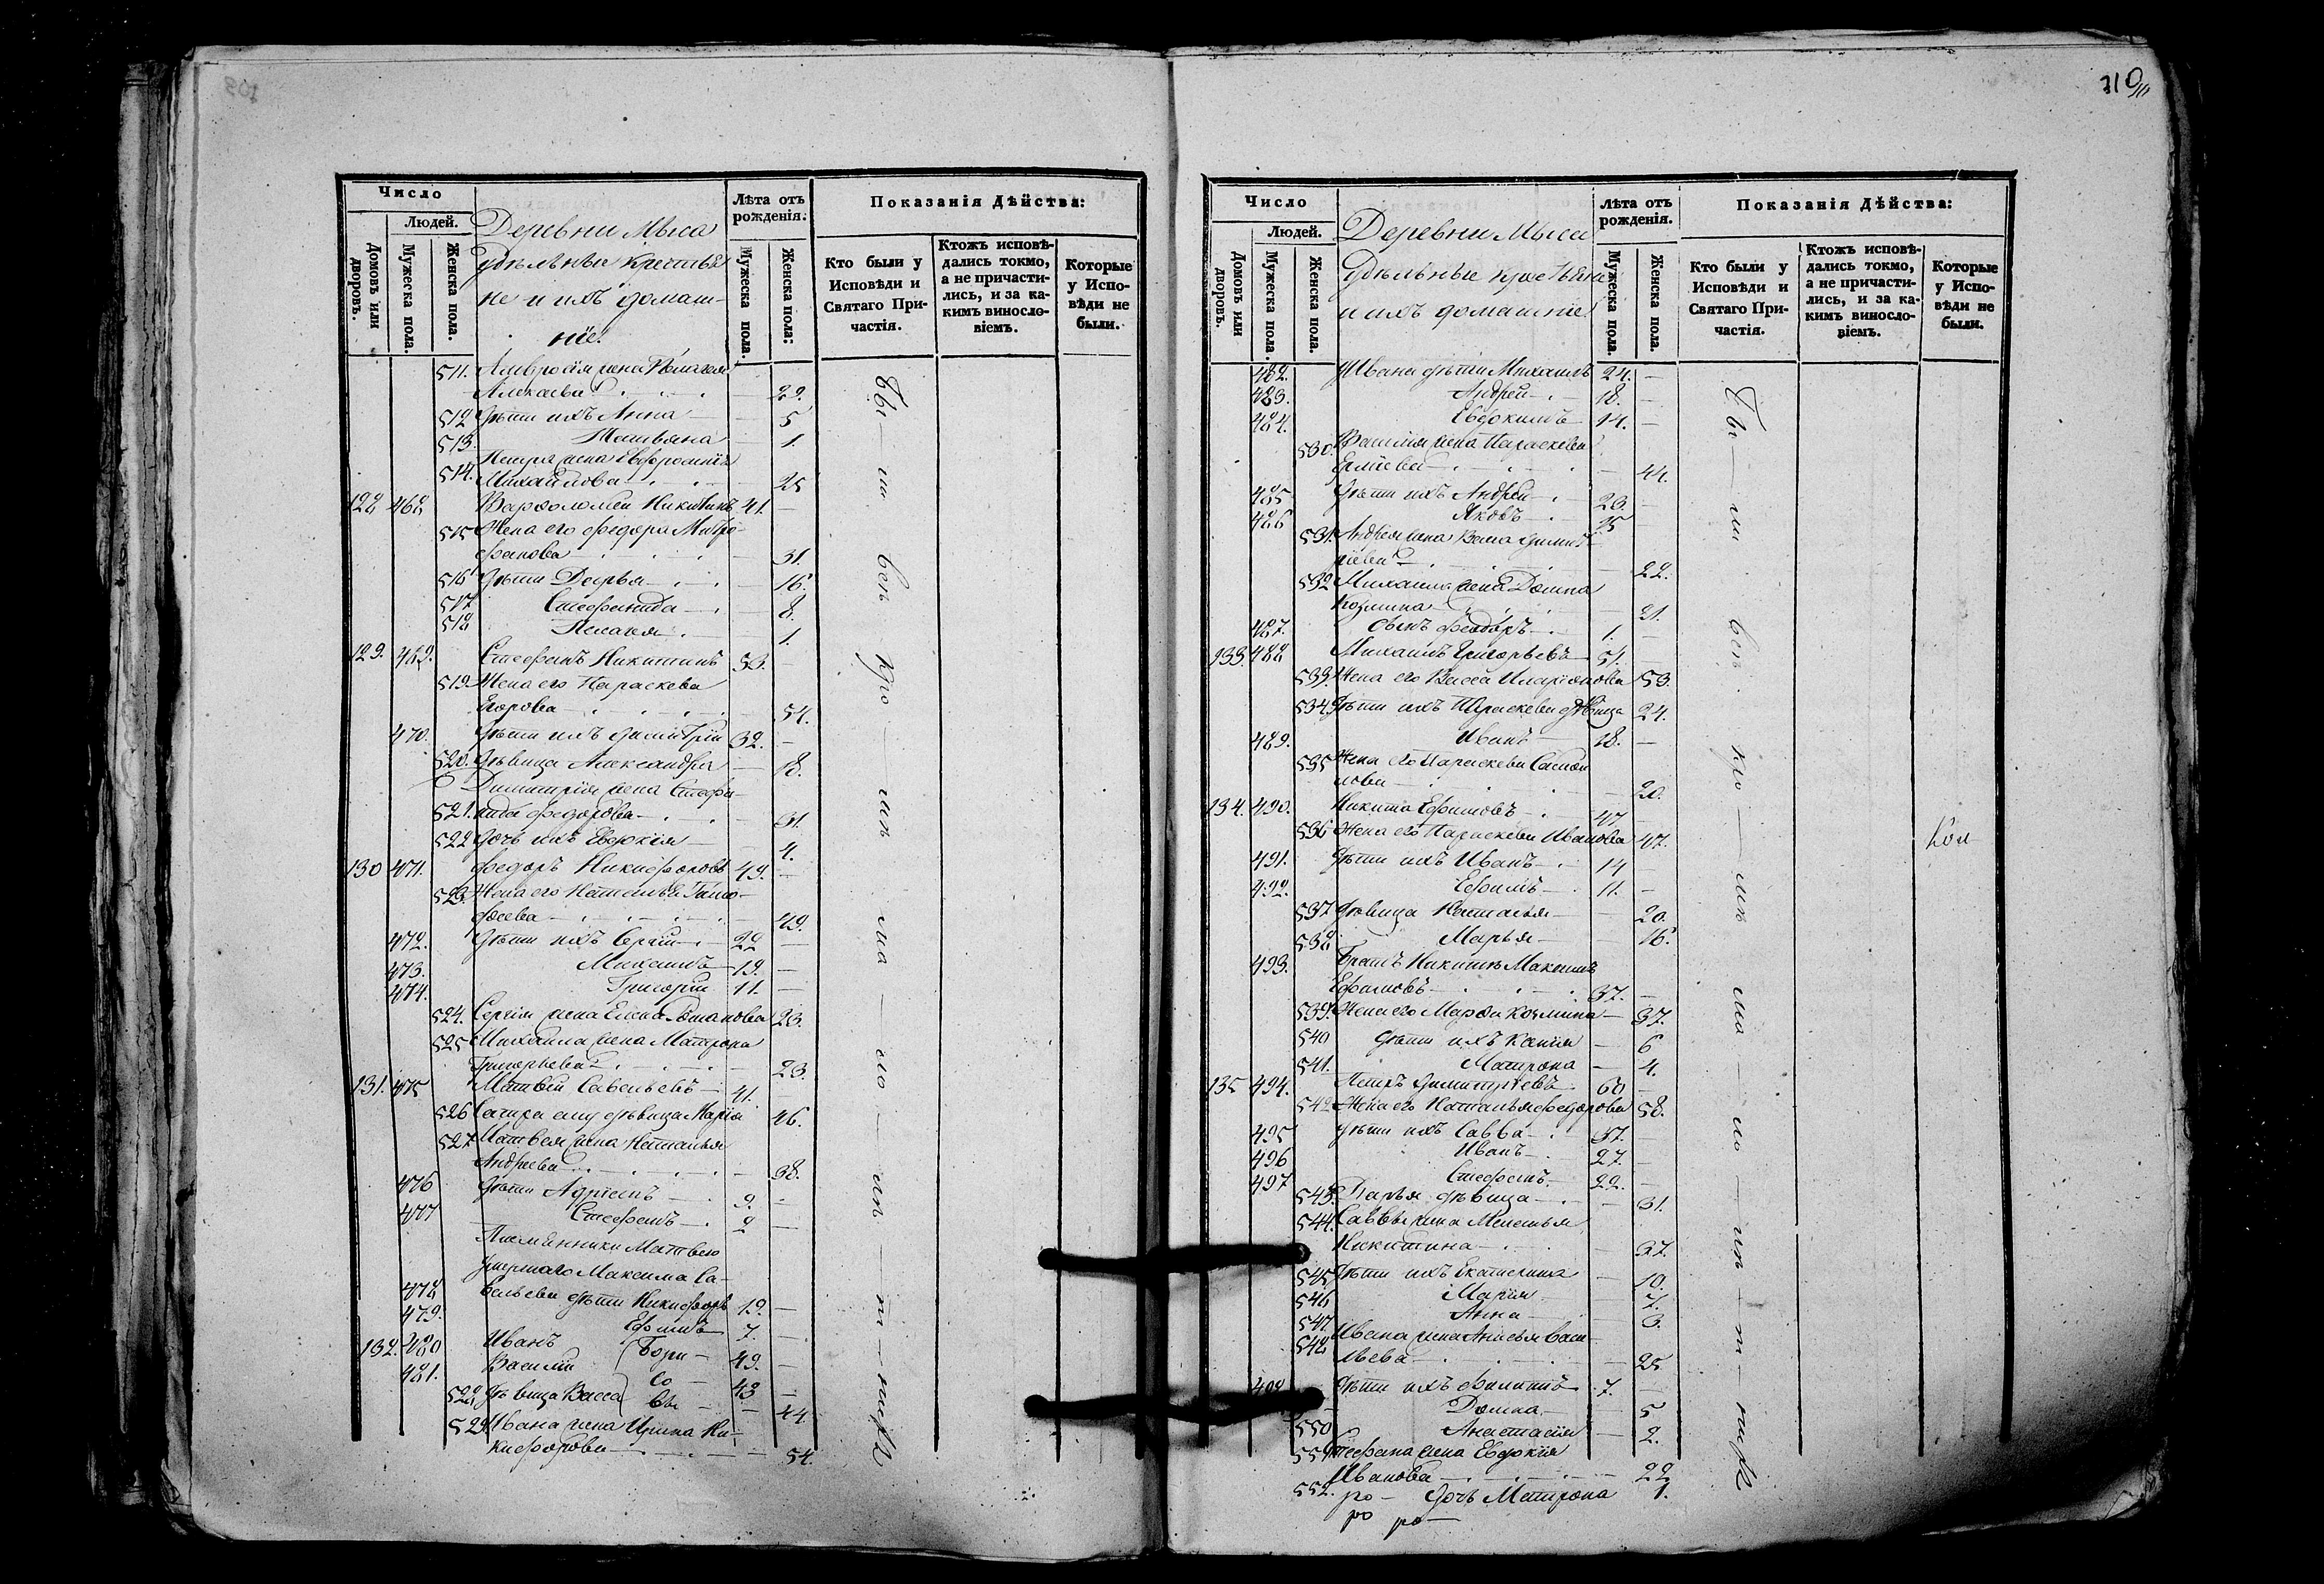 310
Число
Людей.
Домовъ или дворовъ.
Мужеска пола.
Женска пола.
Деревни Мыса
удѣльные крестья
не и ихъ домаш-
ніе.
Лѣта отъ рожденія.
Мужеска пола.
Женска пола.
Показанія Дѣйства:
Кто были у Исповѣди и Святаго При-частія.
Ктожъ исповѣ-дались токмо, а не причасти-лись, и за ка-кимъ винослo-віемъ.
Которые у Испо-вѣди не были.
511. Амвросія жена Пелагея
29.
512 Дѣти ихъ Анна 5
513. Татьяна 1.
Петра жена Евфросинія
514. Михайлова 25
128 468 Варфоломей Никитинъ 41.
515 Жена его Федора Митро
фанова 31.
516 Дѣти Дарья 16.
517 Стефанида 8.
518 Пелагея 1.
129. 469. Стефанъ Никитинъ 53.
519. Жена его Параскева
Егорова 54.
470. Дѣти ихъ Димитрій 32.
520. Дѣвица Александра 18.
Димитрія жена Стефа-
521. нида Федорова 31.
522 Дочь ихъ Евдокія 4.
130 471. Федоръ Никифоровъ 49.
523. Жена его Наталья Тимо-
фѣева 49.
472. Дѣти ихъ Сергій 22
473. Михаилъ 19.
474. Григорій 11.
524. Сергія жена Елена 23.
525 Михаила жена Матрона
Григорьева 23.
131. 475 Матвѣй Савельевъ 41.
526 Сестра ему дѣвица Марія 46.
527 Матвея жена Наталья
Андреева 38.
476 Дѣти Адріанъ 9.
477 Стефанъ 2
Племянники Матвею
умершаго Максима Са-
478 вельева дѣти Никифоръ 19.
479. Ефимъ 7.
132. 480 Иванъ Бори- 49.
481. Василій со- 43
528. Дѣвица Васса вы 44
529. Ивана жена Ирина Ни-
кифорова 54.
Число
Людей.
Домовъ или дворовъ.
Мужеска пола.
Женска пола.
Деревни Мыса
Удѣльные крестьяне
и ихъ домашніе
Лѣта отъ рожденія.
Мужеска пола.
Женска пола.
Показанія Дѣйства:
Кто были у Исповѣди и Святаго При-частія.
Ктожъ исповѣ-дались токмо, а не причасти-лись, и за ка-кимъ винослo-віемъ.
Которые у Испо-вѣди не были.
482. Ивана дѣти Михаилъ 24.
483. Андрей 18.
484. Евдокимъ 14.
530. Василія жена Параскева
44.
485 Дѣти ихъ Андрей 23.
486 Яковъ
531. Андрея жена Димит-
ріева 22.
532 Михаила жена Домна
Козмина 21.
487. Сынъ Феодоръ 1.
133. 488 Михаилъ Григорьевъ 51.
533. Жена его Васса Иларіонова 53.
534. Дѣти ихъ Параскева дѣвица 24.
489. Иванъ 18.
535 Жена его Параскева Самой
лова 20.
134. 490. Никита Ефимовъ 47
536 Жена его Параскева Иванова 47.
491. Дѣти ихъ Иванъ 14
492. Ефимъ 11.
537 Дѣвица Наталья 20.
538 Марья 16.
493. Братъ Никитѣ Максимъ
Ефимовъ 37.
539. Жена его Марфа Козмина 37.
540 Дѣти ихъ Ксенія 6
541. Матрона 4.
135 494. Петръ Димитріевъ 60
542 Жена его Наталья Федорова 58.
495 Дѣти ихъ Савва 37.
496 Иванъ 27.
497 Стефанъ 22.
543. Дарья дѣвица 31.
544. Саввы жена Меланья
Никитина 37.
545 Дѣти ихъ Екатерина 10.
546 Марія 7.
547. Анна 3.
548 Ивана жена Анисья Васи-
льева 25
498 Дѣти ихъ Филиппъ 7.
Домна 5
550 Анастасія 2.
551 Стефана жена Евдокія
Иванова 22
552. Дочь Матрона 1.